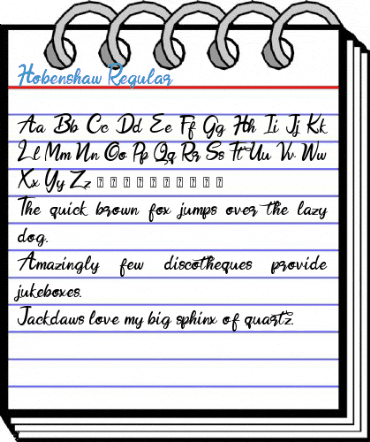 Hobenshaw Regular
Aa Bb Cc Dd Ee Ff Gg Hh Ii Jj Kk
Ll Mm Nn Oo Pp Qq Rr Ss Tt Uu Vv Ww
Xx Yy Zz
The quick brown fox jumps over the lazy
dog.
Amazingly few discotheques provide
jukeboxes.
Jackdaws love my big sphinx of quartz.